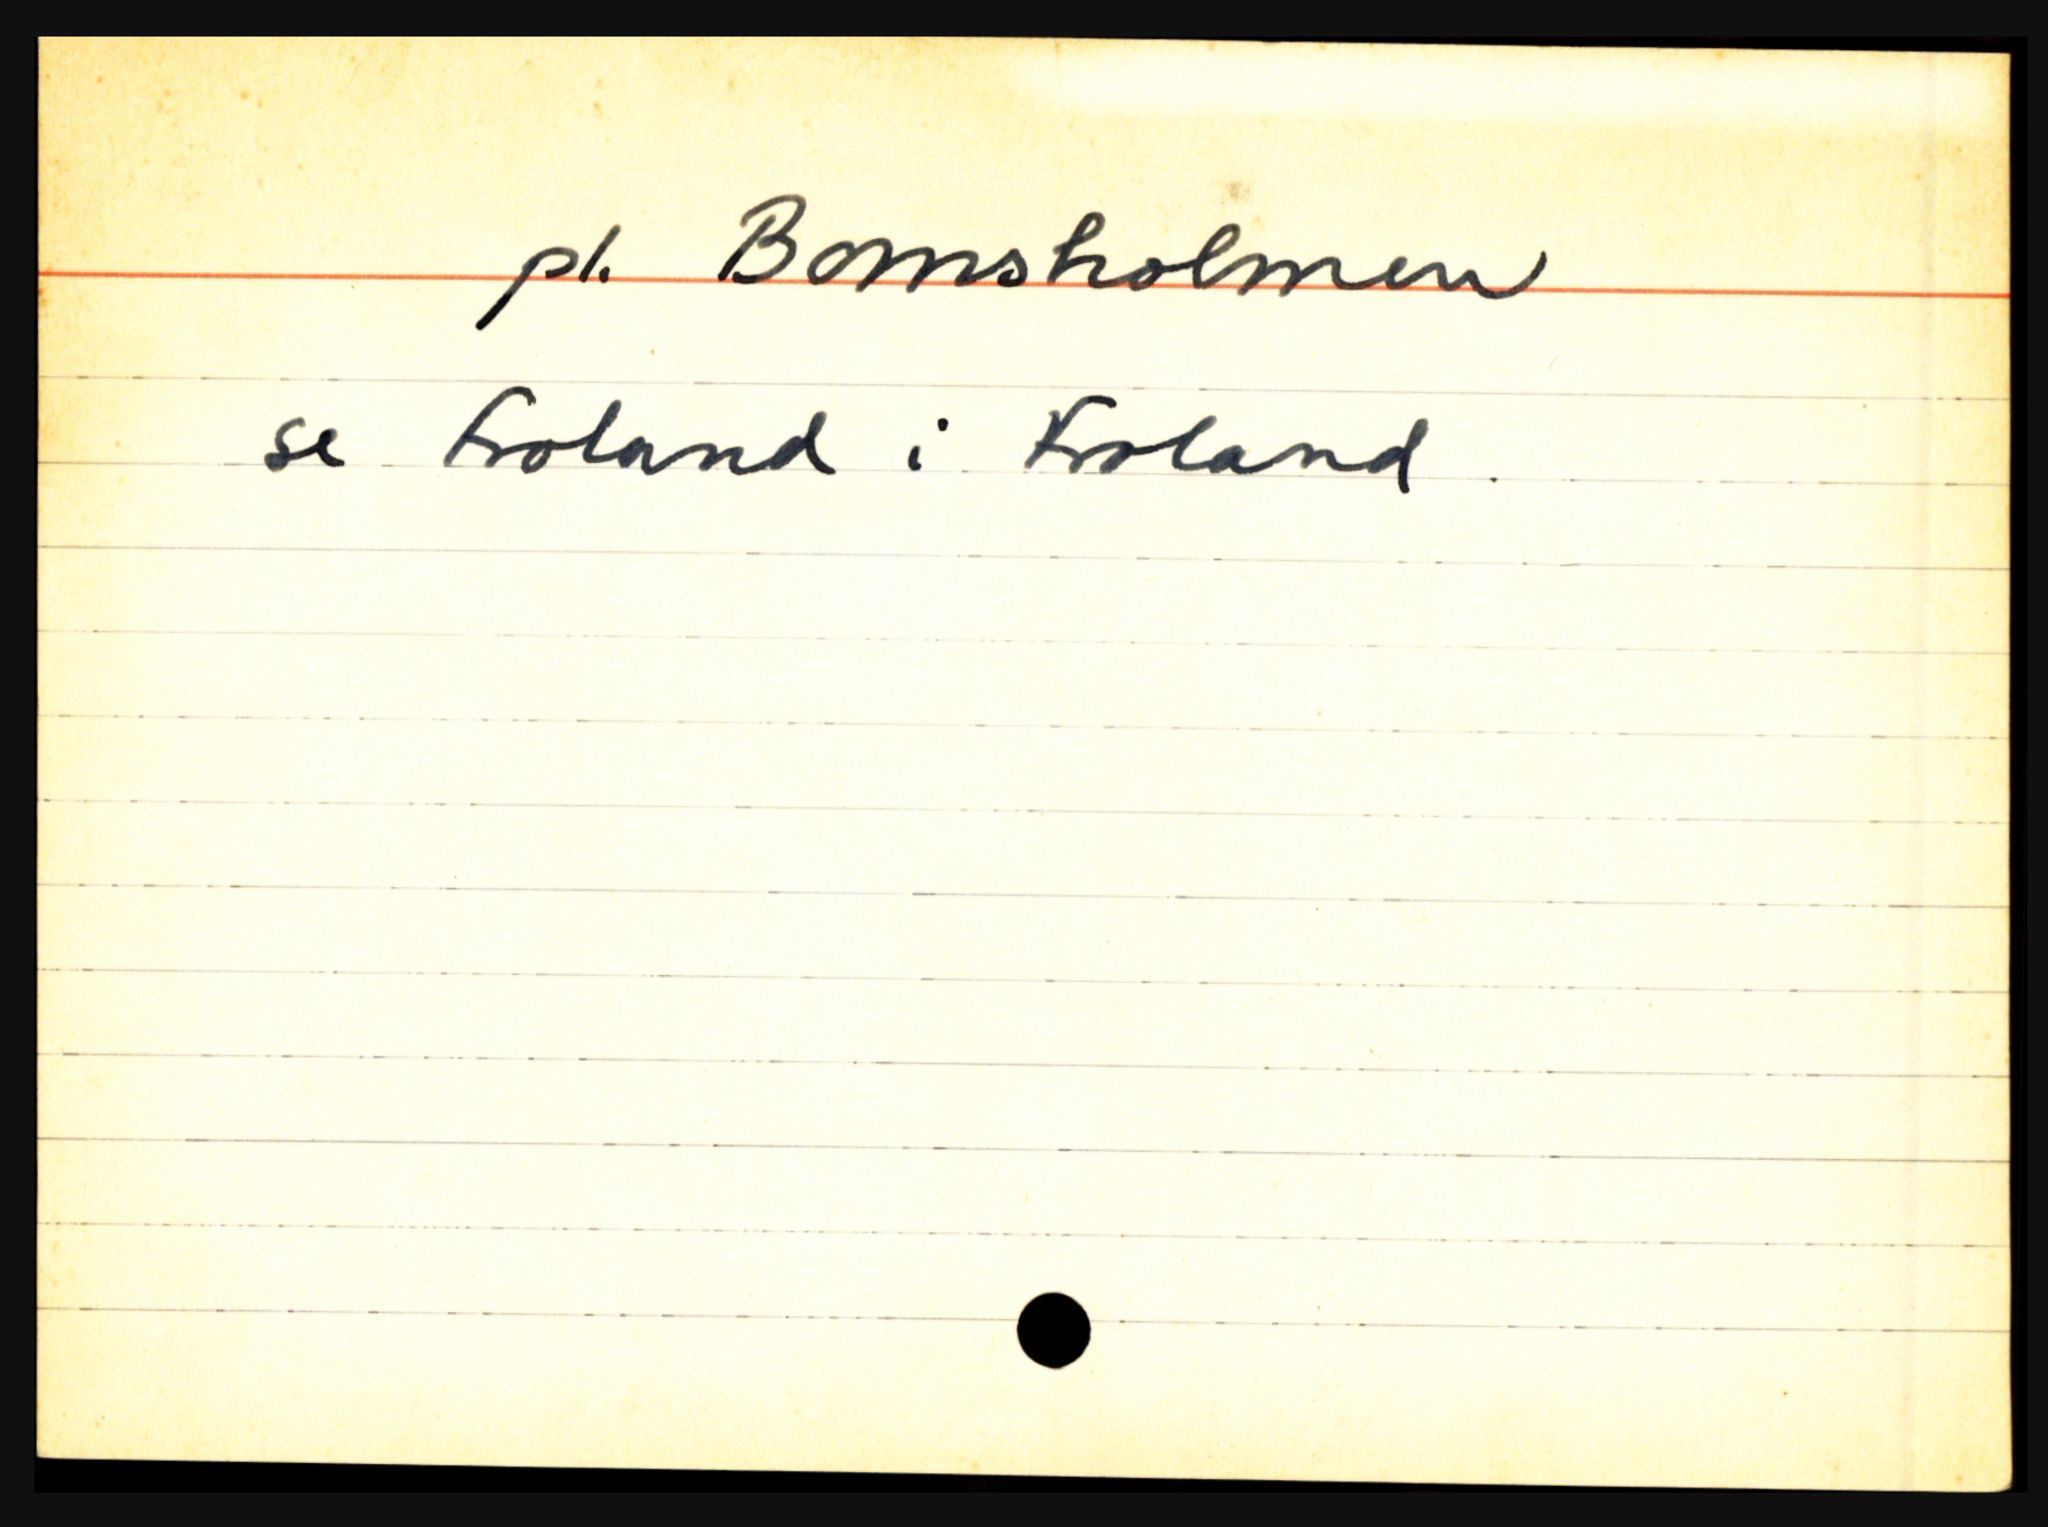 pl. Bomsholmen
se Froland i Froland.